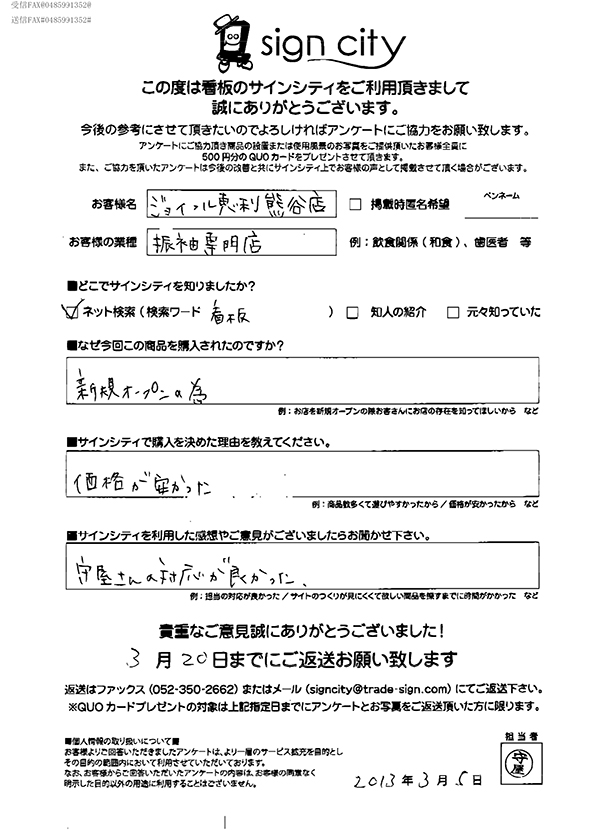 受信FAX@0485991352@
送信FAX#0485991352#
sign city
この度は看板のサインシティをご利用頂きまして
誠にありがとうございます。
今後の参考にさせて頂きたいのでよろしければアンケートにご協力をお願い致します。
アンケートにご協力頂き商品の設置または使用風景のお写真をご提供頂いたお客様全員に
500円分のQUOカードをプレゼントさせて頂きます。
また、ご協力を頂いたアンケートは今後の改善と共にサインシティ上でお客様の声として掲載させて頂く場合がございます。
お客様名 ジョイフル恵利熊谷店 □ 掲載時匿名希望 ペンネーム
お客様の業種 振袖専門店 例：飲食関係（和食）、歯医者 等
■どこでサインシティを知りましたか？
☑ネット検索（検索ワード 看板 ） □ 知人の紹介 □ 元々知っていた
■なぜ今回この商品を購入されたのですか？
新規オープンの為
例：お店を新規オープンの際お客さんにお店の存在を知ってほしいから など
■サインシティで購入を決めた理由を教えてください。
価格が安かった
例：商品数多くて選びやすかったから／価格が安かったから など
■サインシティを利用した感想やご意見がございましたらお聞かせ下さい。
守屋さんの対応が良かった、
例：担当の対応が良かった／サイトのつくりが見にくくて欲しい商品を探すまでに時間がかかった など
貴重なご意見誠にありがとうございました！
3月20日までにご返送お願い致します
返送はファックス（052-350-2662）またはメール（signcity@trade-sign.com）にてご返送下さい。
※QUOカードプレゼントの対象は上記指定日までにアンケートとお写真をご返送頂いた方に限ります。
■個人情報の取り扱いについて■
お客様よりご回答いただきましたアンケートは、より一層のサービス拡充を目的とし
その目的の範囲内において利用させていただいております。
なお、お客様からご回答いただいたアンケートの内容は、お客様の同意なく
明示した目的以外の用途に利用することはございません。
2013年3月5日
担当者
守屋